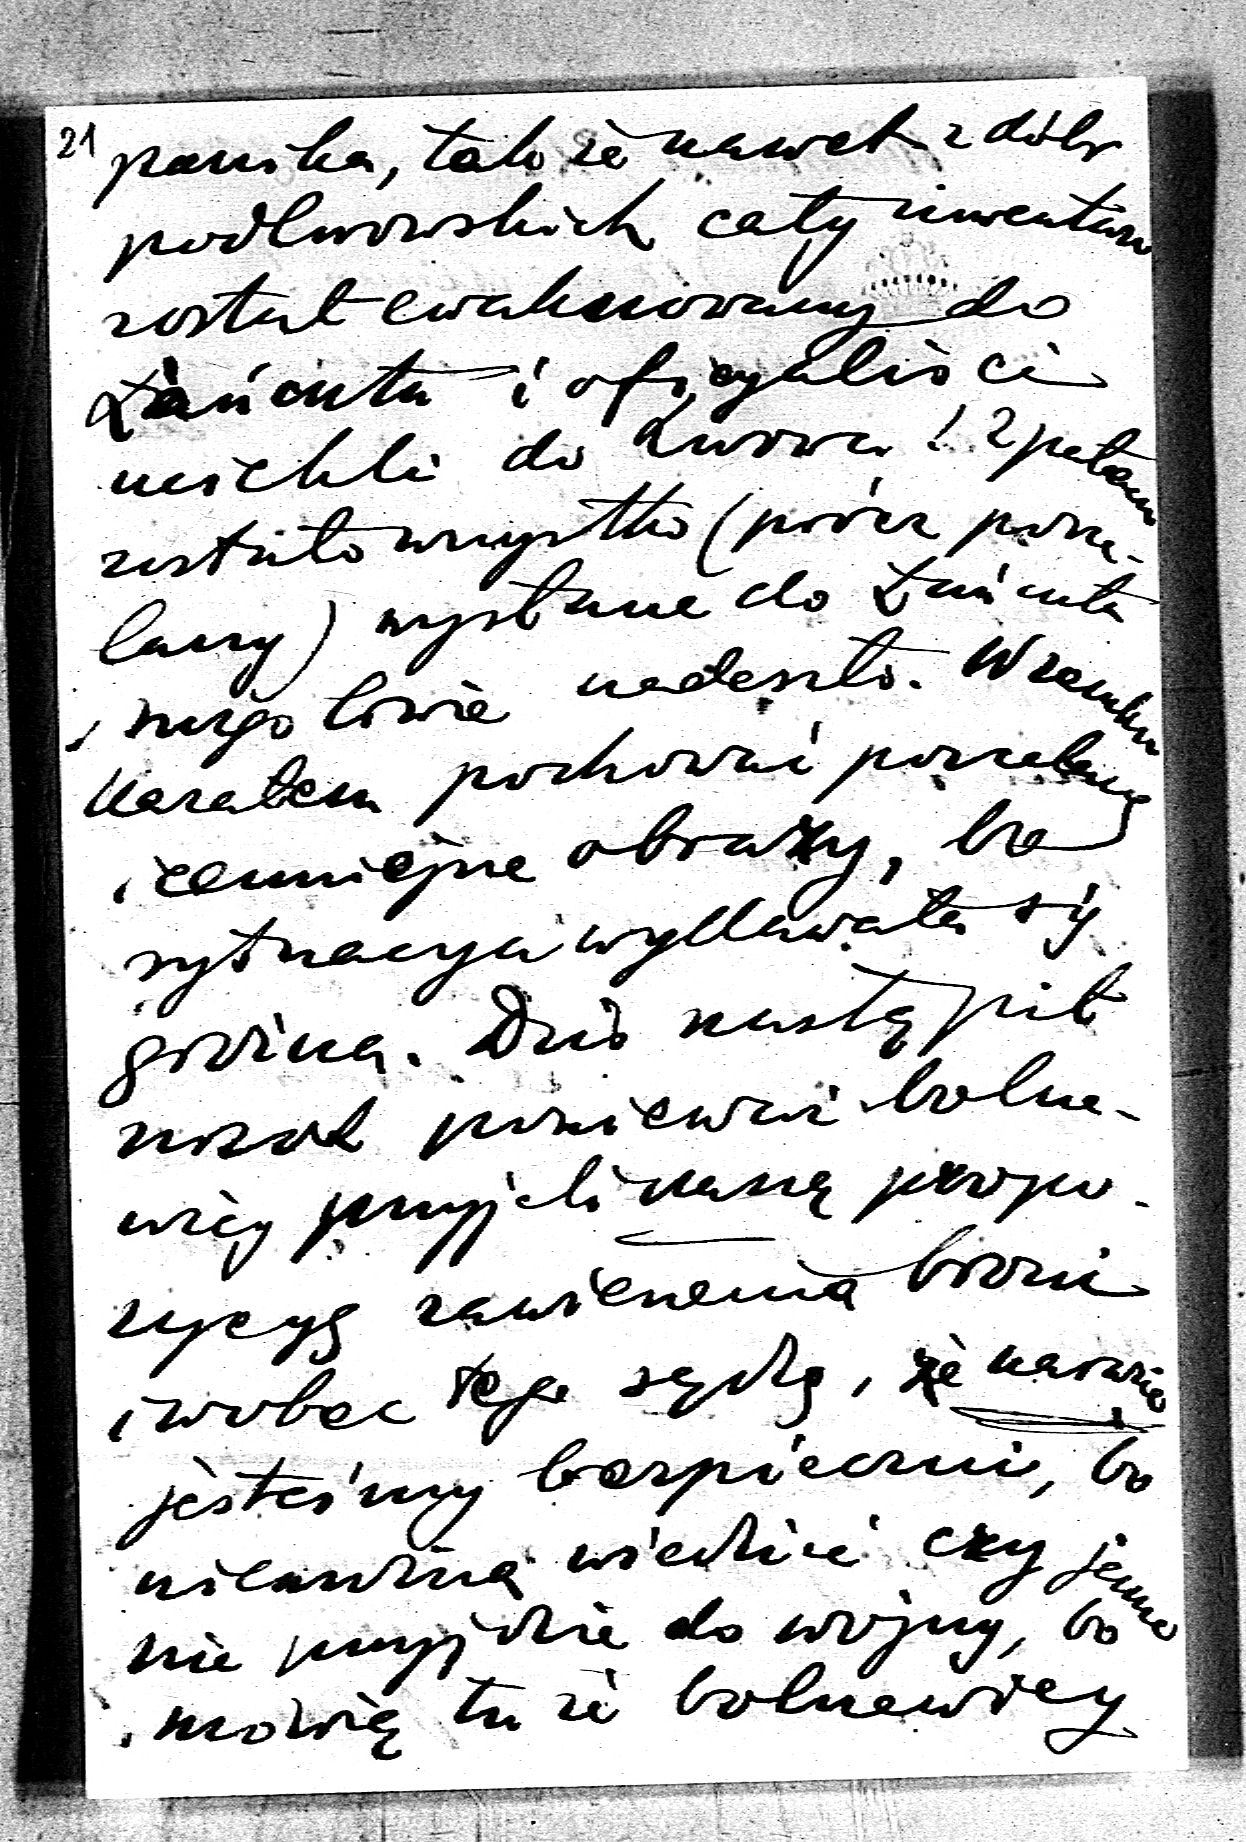 21
panika, tak że nawet z dóbr
podlwowskich cały inwentarz
został ewakuowany do
Łańcuta i oficyaliści
uciekli do Lwowa! Z potem
zostało wszystko (prócz porce-
lany) wysłane do Łańcuta
i szczęśliwie nadeszło. W zamku
kazałem pochować porcelanę
i cenniejsze obrazy, bo
sytuacya wydawała się
groźną. Dziś nastąpił
zwrot ponieważ bolsze-
wicy przyjęli naszą propo-
zycyę zawieszenia broni
i wobec tego sądzę, że narazie
jesteśmy bezpieczni, bo
nie można wiedzieć czy jeszcze
nie przyjdzie do wojny, bo
mówią tu że bolszewicy